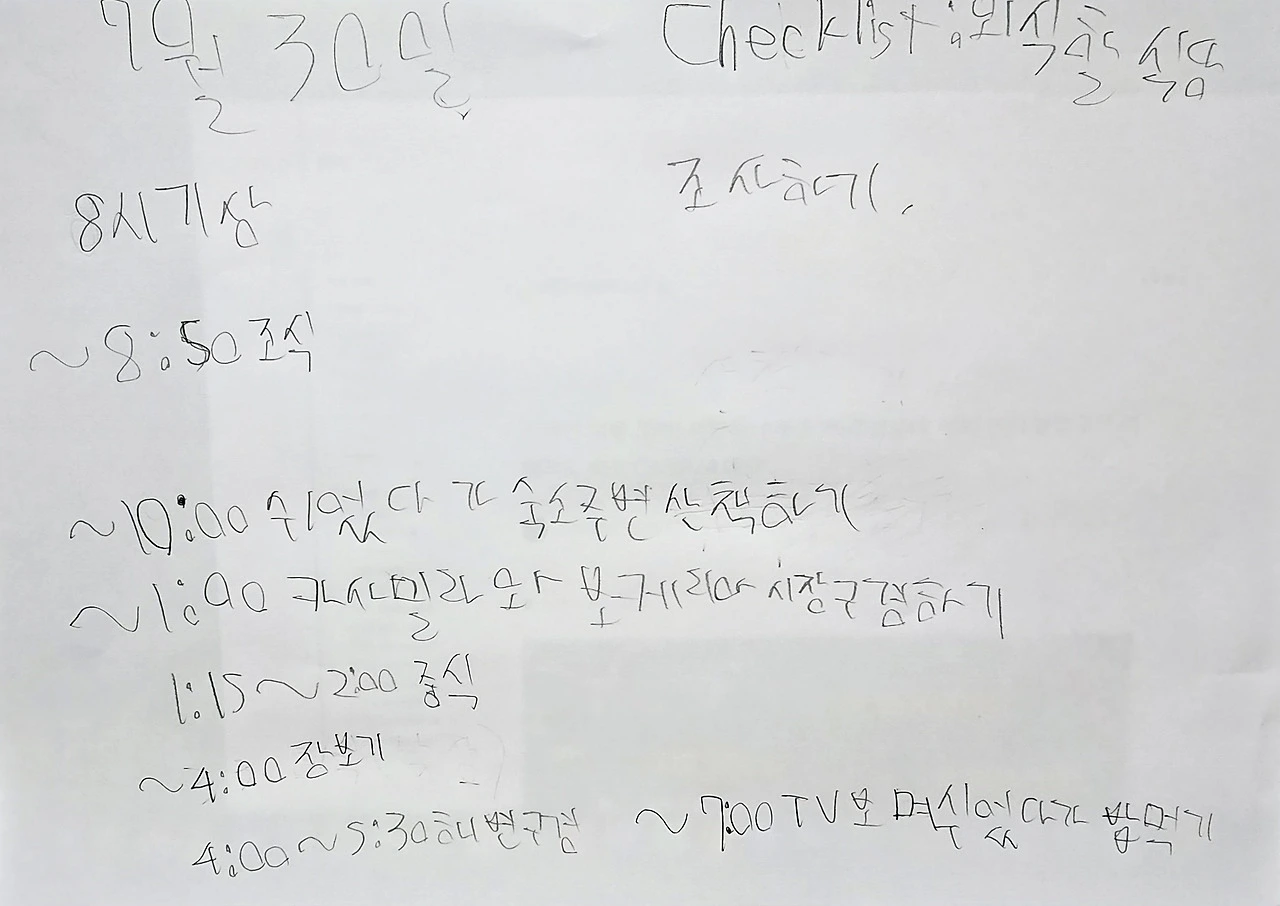 7월 30일
Checklist : 외식할 식당
조사하기.
8시 기상
~8:50 조식
~10:00 쉬었다가 숙소주변 산책하기
~1:00 카사밀라와 보케리아 시장구경하기
1:15~2:00 중식
~4:00 장보기
4:00~5:30 해변구경
~7:00 TV보며 쉬었다가 밥먹기